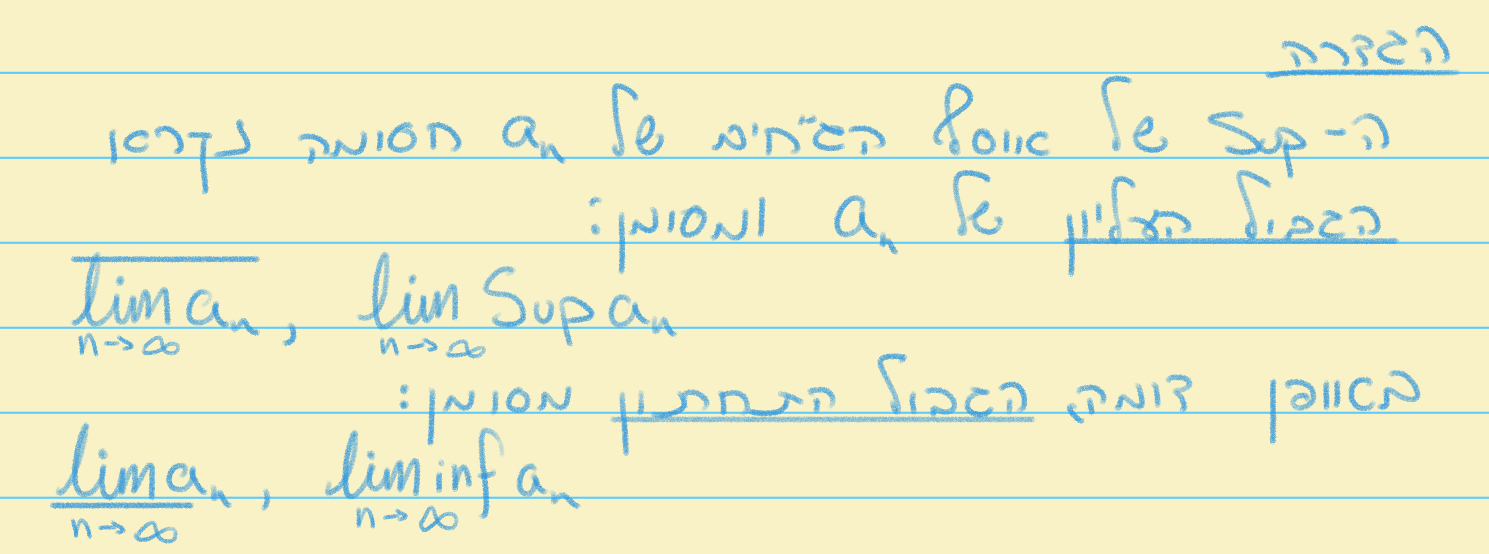 הגדרה
ה-Sup של אוסף הג"חים של aₙ חסומה נקרא
הגבול העליון של aₙ ומסומן:
\overline{lim}_{n→∞} aₙ, lim_{n→∞} Sup aₙ
באופן דומה, הגבול התחתון מסומן:
\underline{lim}_{n→∞} aₙ, lim inf_{n→∞} aₙ